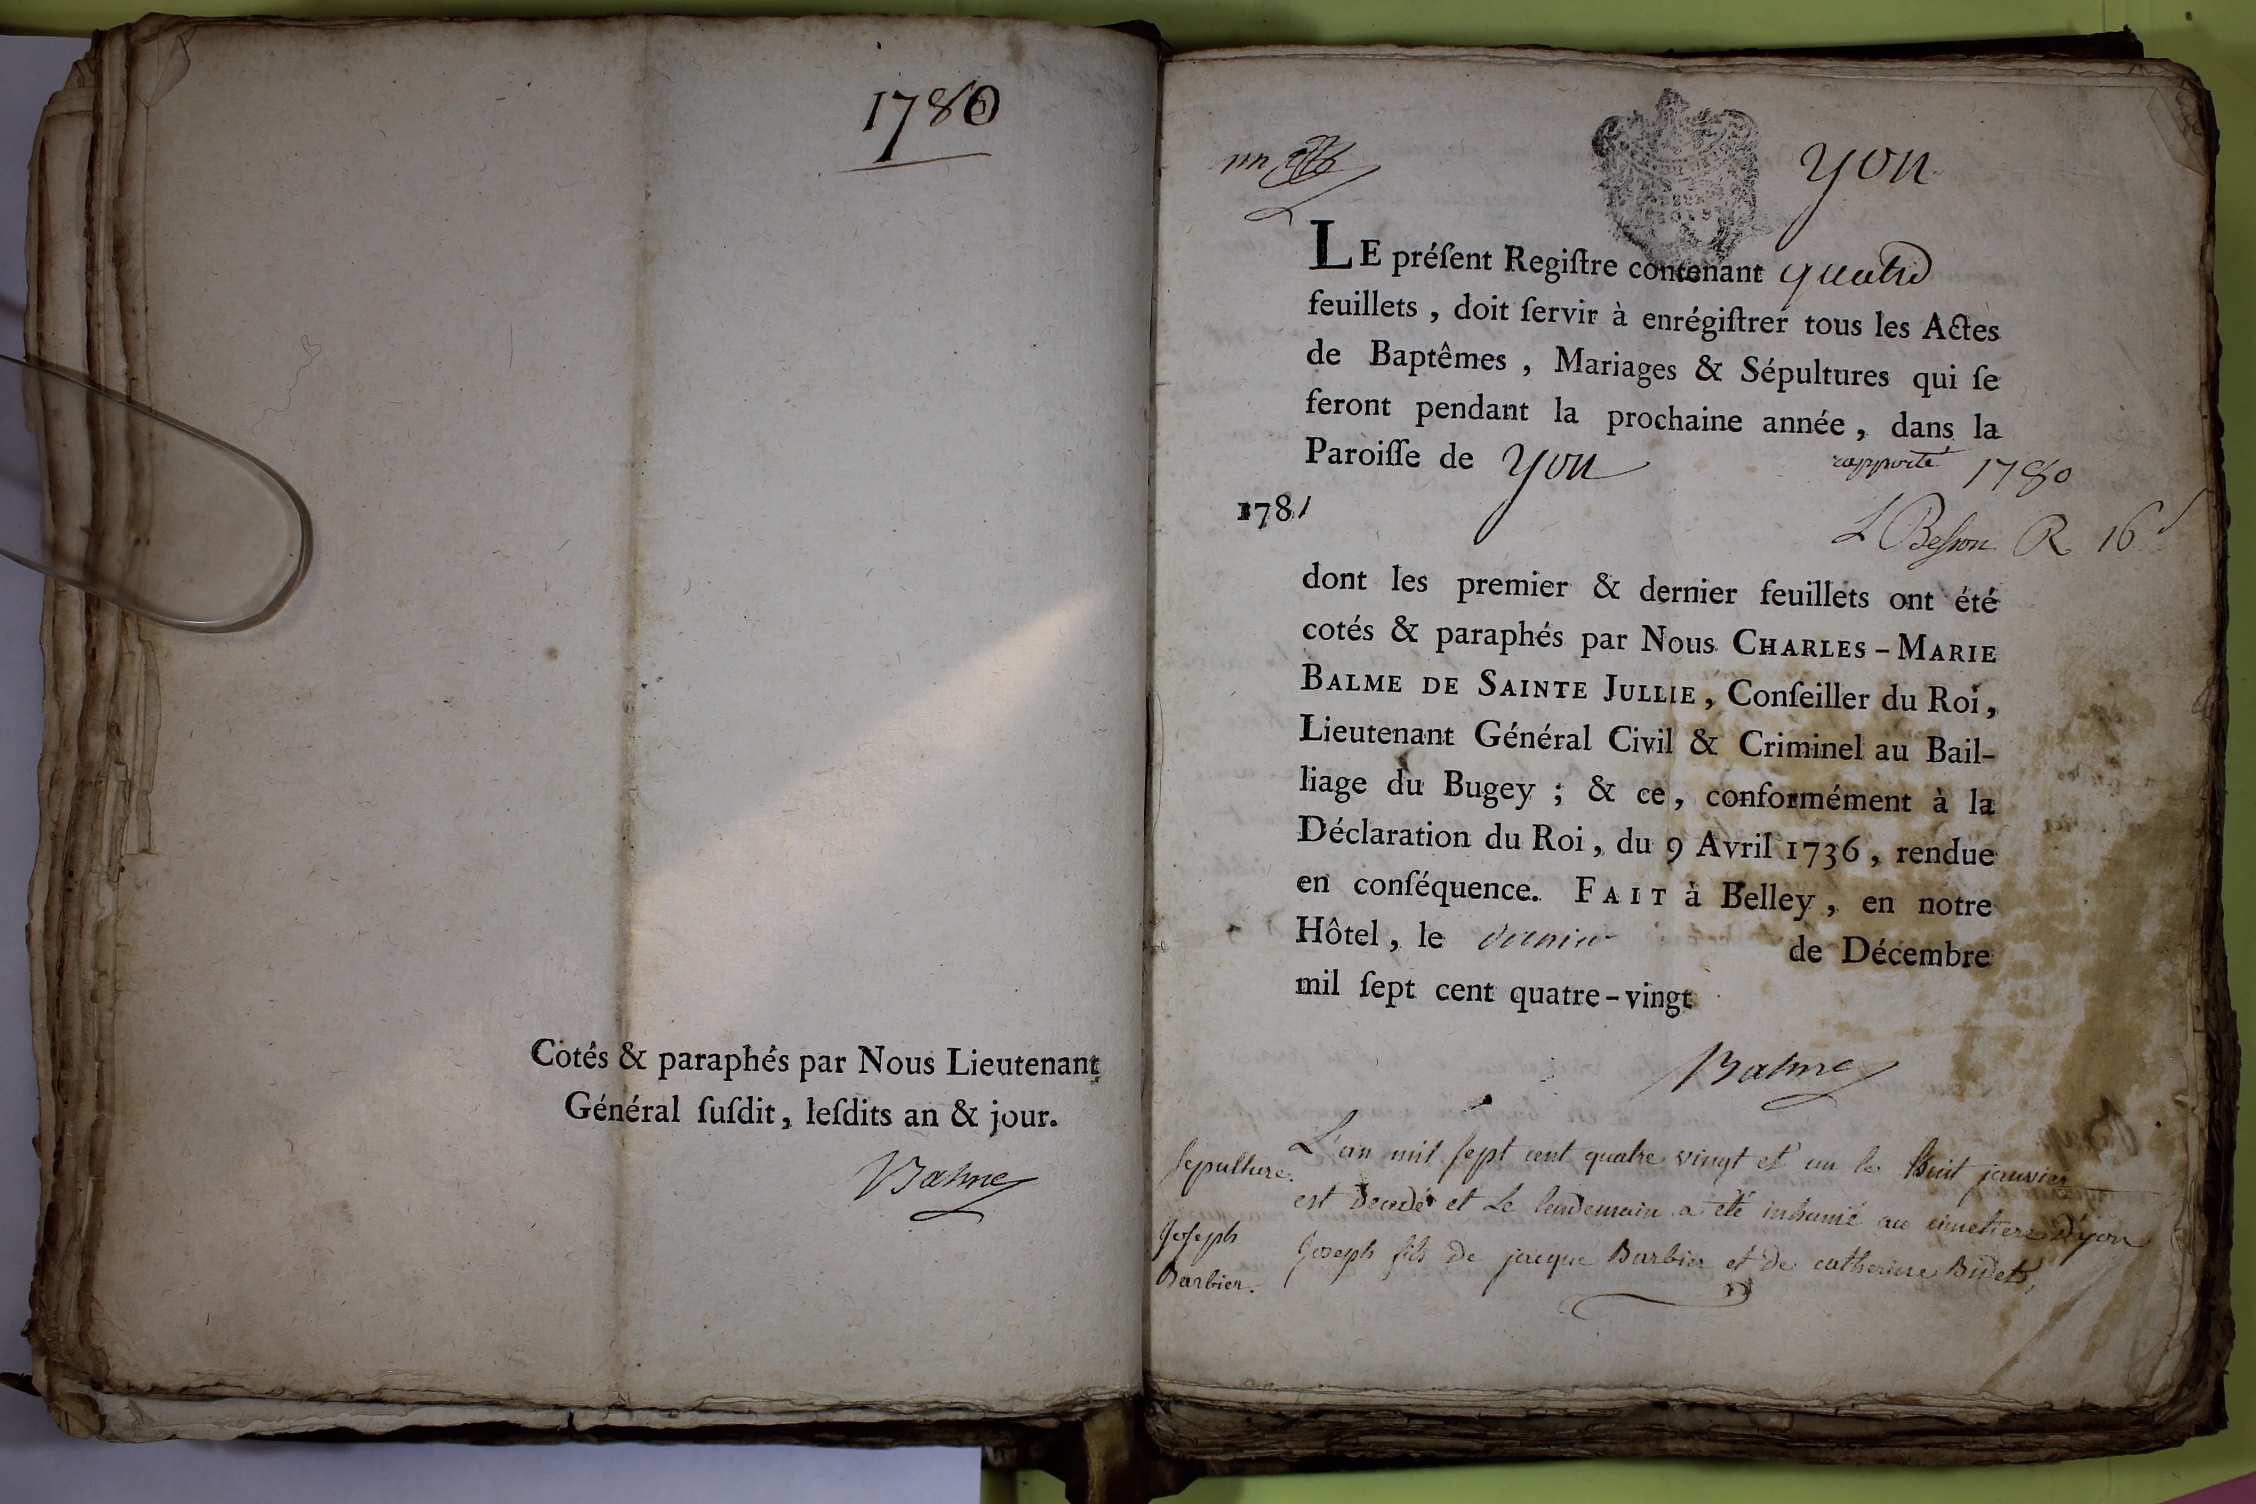 1780
Cotés & paraphés par Nous Lieutenant
Général ſuſdit, leſdits an & jour.
Balme
un
yon
LE préſent Regiſtre contenant quatre
feuillets, doit ſervir à enrégiſtrer tous les Actes
de Baptêmes, Mariages & Sépultures qui ſe
feront pendant la prochaine année, dans la
Paroiſſe de yon
rapporté 1780
1781
L Beſson R 16
dont les premier & dernier feuillets ont été
cotés & paraphés par Nous CHARLES-MARIE
BALME DE SAINTE JULLIE, Conſeiller du Roi,
Lieutenant Général Civil & Criminel au Bail-
liage du Bugey ; & ce, conformément à la
Déclaration du Roi, du 9 Avril 1736, rendue
en conſéquence. FAIT à Belley, en notre
Hôtel, le dernier de Décembre
mil ſept cent quatre-vingt
Balme
ſepulture.
L'an mil ſept cent quatre vingt et un le huit janvier
est decedé et le lendemain a été inhumé au cimetiere d'yon
Joſeph
Barbier.
joseph fils de jacque Barbier et de catherine Bidet,